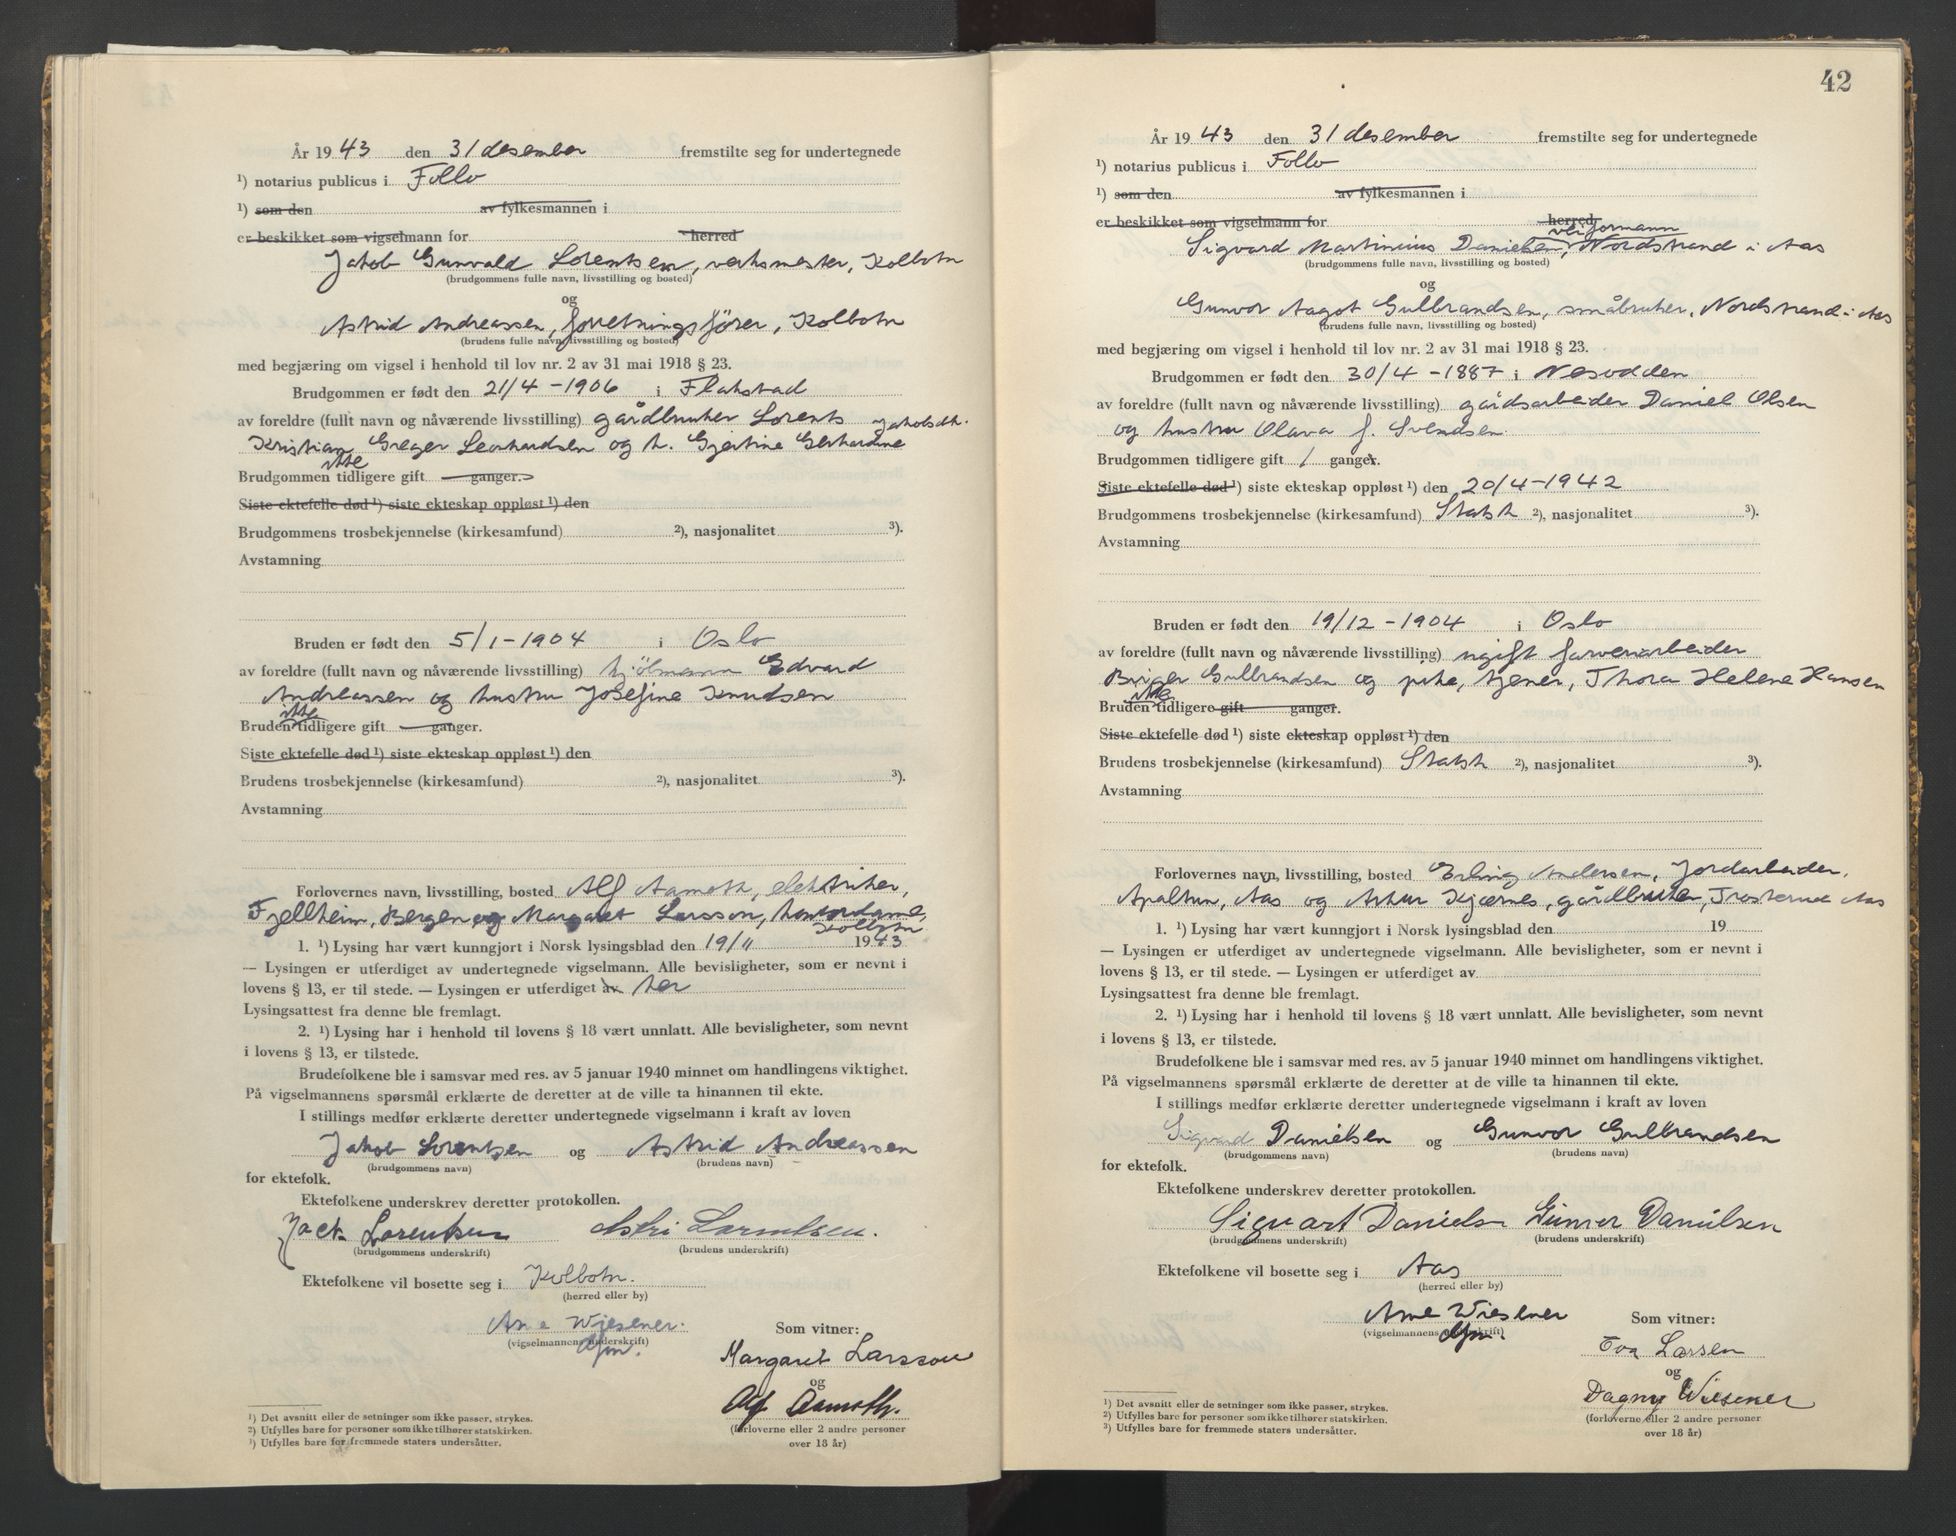 År 19 43 den 31 desember fremstilte seg for undertegnede
¹) notarius publicus i Follo
¹) som den av fylkesmannen i
er beskikket som vigselmann for herred
Jakob Gunvald Lorentsen, verksmester, Kolbotn
(brudgommens fulle navn, livsstilling og bosted)
og
Astrid Andreassen, forretningsfører, Kolbotn
(brudens fulle navn, livsstilling og bosted)
med begjæring om vigsel i henhold til lov nr. 2 av 31 mai 1918 § 23.
Brudgommen er født den 21/4 - 1906 i Flakstad
av foreldre (fullt navn og nåværende livsstilling) gårdbruker Lorents Jakobsdt.
Kristian Greger Leonhardsen og h. Gjertine Gerhardine
ikke
Brudgommen tidligere gift ganger.
Siste ektefelle død ¹) siste ekteskap oppløst ¹) den
Brudgommens trosbekjennelse (kirkesamfund) ²), nasjonalitet ³).
Avstamning
Bruden er født den 5/1 - 1904 i Oslo
av foreldre (fullt navn og nåværende livsstilling) hjølmann Edvard
Andreassen og hustru Josefine Knudsen
ikke
Bruden tidligere gift ganger.
Siste ektefelle død ¹) siste ekteskap oppløst ¹) den
Brudens trosbekjennelse (kirkesamfund) ²), nasjonalitet ³).
Avstamning
Forlovernes navn, livsstilling, bosted Alf Aamoth, elektriker,
Fjellheim, Bergen og Margaret Larsson, kontordame,
Kolbotn
1. ¹) Lysing har vært kunngjort i Norsk lysingsblad den 19/11 1943
— Lysingen er utferdiget av undertegnede vigselmann. Alle bevisligheter, som er nevnt i
lovens § 13, er til stede. — Lysingen er utferdiget av her
Lysingsattest fra denne ble fremlagt.
2. ¹) Lysing har i henhold til lovens § 18 vært unnlatt. Alle bevisligheter, som nevnt
i lovens § 13, er tilstede.
Brudefolkene ble i samsvar med res. av 5 januar 1940 minnet om handlingens viktighet.
På vigselmannens spørsmål erklærte de deretter at de ville ta hinannen til ekte.
I stillings medfør erklærte deretter undertegnede vigselmann i kraft av loven
Jakob Lorentsen og Astrid Andreassen
(brudgommens navn) (brudens navn)
for ektefolk.
Ektefolkene underskrev deretter protokollen.
Jack Lorentsen Astri Lorentsen.
(brudgommens underskrift) (brudens underskrift)
Ektefolkene vil bosette seg i Kolbotn.
(herred eller by)
Arne Wiesener.
(vigselmannens underskrift)
Som vitner:
Margaret Larsson
og
Alf Aamoth.
(forloverne eller 2 andre personer
over 18 år)
¹) Det avsnitt eller de setninger som ikke passer, strykes.
²) Utfylles bare for personer som ikke tilhører statskirken.
³) Utfylles bare for fremmede staters undersåtter.
42
År 19 43 den 31 desember fremstilte seg for undertegnede
¹) notarius publicus i Follo
¹) som den av fylkesmannen i
er beskikket som vigselmann for herred
veiformann
Sigvard Martinius Danielsen, Nordstrand i Aas
(brudgommens fulle navn, livsstilling og bosted)
og
Gunvor Aagot Gulbrandsen, småbruker, Nordstrand i Aas
(brudens fulle navn, livsstilling og bosted)
med begjæring om vigsel i henhold til lov nr. 2 av 31 mai 1918 § 23.
Brudgommen er født den 30/4 - 1887 i Nesodden
av foreldre (fullt navn og nåværende livsstilling) gårdsarbeider Daniel Olsen
og hustru Olava f. Svendsen.
Brudgommen tidligere gift 1 ganger.
Siste ektefelle død ¹) siste ekteskap oppløst ¹) den 20/4 - 1942
Brudgommens trosbekjennelse (kirkesamfund) Statsk ²), nasjonalitet ³).
Avstamning
Bruden er født den 19/12 - 1904 i Oslo
av foreldre (fullt navn og nåværende livsstilling) ugift farveriarbeider
Birger Gulbrandsen og pike, tjener, Thora Helene Hansen
ikke
Bruden tidligere gift ganger.
Siste ektefelle død ¹) siste ekteskap oppløst ¹) den
Brudens trosbekjennelse (kirkesamfund) Statsk ²), nasjonalitet ³).
Avstamning
Forlovernes navn, livsstilling, bosted Erling Andersen, Jordarbeider,
Apaltun, Aas og Artur Kjærnes, gårdbruker, Aas
1. ¹) Lysing har vært kunngjort i Norsk lysingsblad den 19
— Lysingen er utferdiget av undertegnede vigselmann. Alle bevisligheter, som er nevnt i
lovens § 13, er til stede. — Lysingen er utferdiget av
Lysingsattest fra denne ble fremlagt.
2. ¹) Lysing har i henhold til lovens § 18 vært unnlatt. Alle bevisligheter, som nevnt
i lovens § 13, er tilstede.
Brudefolkene ble i samsvar med res. av 5 januar 1940 minnet om handlingens viktighet.
På vigselmannens spørsmål erklærte de deretter at de ville ta hinannen til ekte.
I stillings medfør erklærte deretter undertegnede vigselmann i kraft av loven
Sigvard Danielsen og Gunvor Gulbrandsen
(brudgommens navn) (brudens navn)
for ektefolk.
Ektefolkene underskrev deretter protokollen.
Sigvart Daniels Gunvor Danielsen
(brudgommens underskrift) (brudens underskrift)
Ektefolkene vil bosette seg i Aas
(herred eller by)
Arne Wiesener
(vigselmannens underskrift)
Som vitner:
Eva Larsen
og
Dagny Wiesener
(forloverne eller 2 andre personer
over 18 år)
¹) Det avsnitt eller de setninger som ikke passer, strykes.
²) Utfylles bare for personer som ikke tilhører statskirken.
³) Utfylles bare for fremmede staters undersåtter.